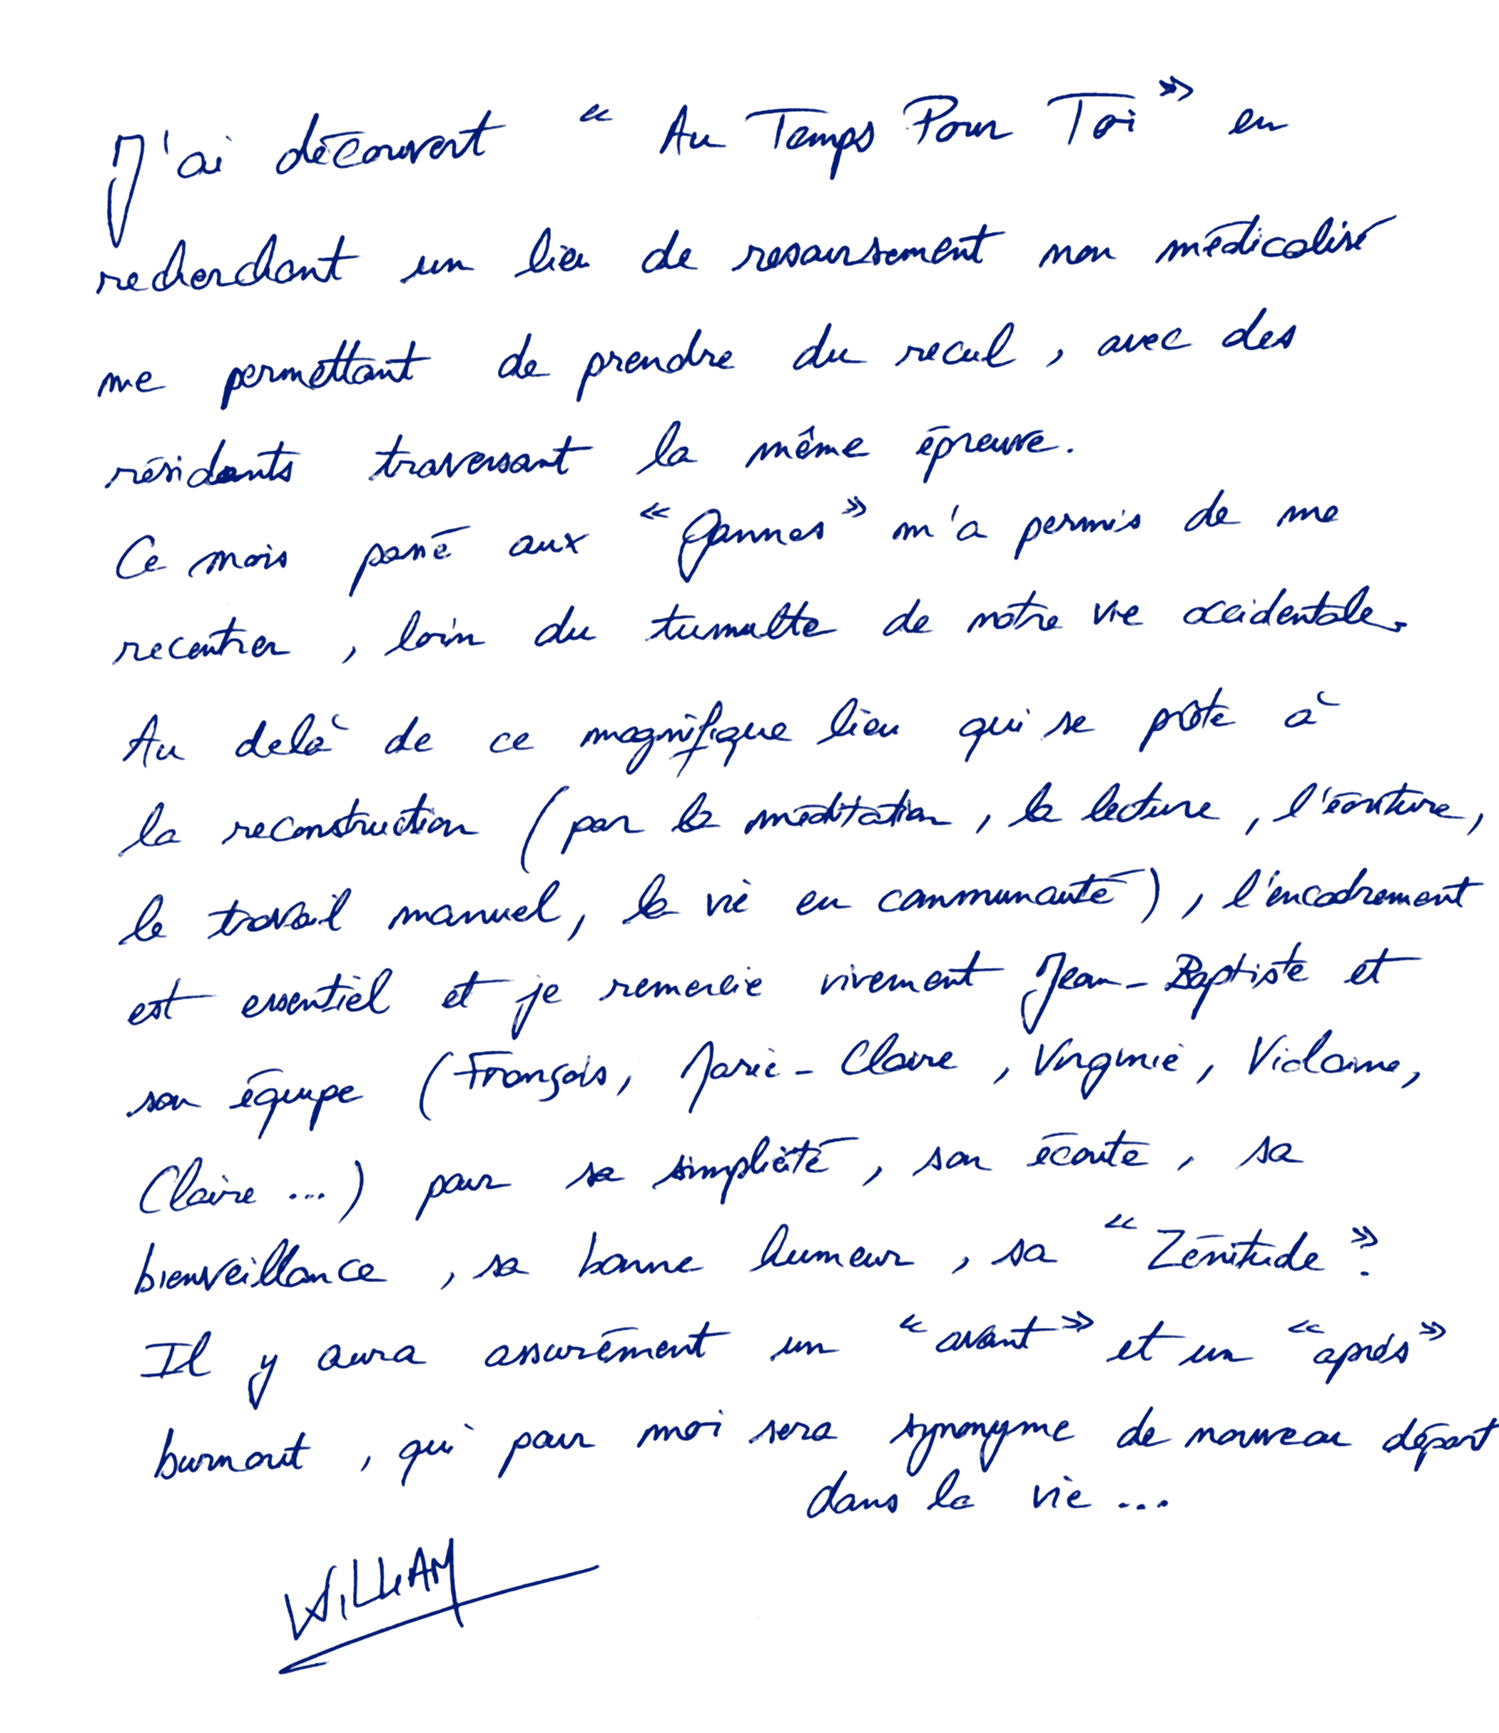 J'ai découvert « Au Temps Pour Toi » en
recherchant un lieu de ressourcement non médicalisé
me permettant de prendre du recul, avec des
résidants traversant la même épreuve.
Ce mois passé aux « Gannes » m'a permis de me
recentrer, loin du tumulte de notre vie occidentale.
Au delà de ce magnifique lieu qui se prête à
la reconstruction (par la méditation, la lecture, l'écriture,
le travail manuel, la vie en communauté), l'encadrement
est essentiel et je remercie vivement Jean-Baptiste et
son équipe (François, Marie-Claire, Virginie, Violaine,
Claire ...) pour sa simplicité, son écoute, sa
bienveillance, sa bonne humeur, sa « Zénitude »
Il y aura assurément un « avant » et un « après »
burnout, qui pour moi sera synonyme de nouveau départ
dans la vie ...
WILLIAM